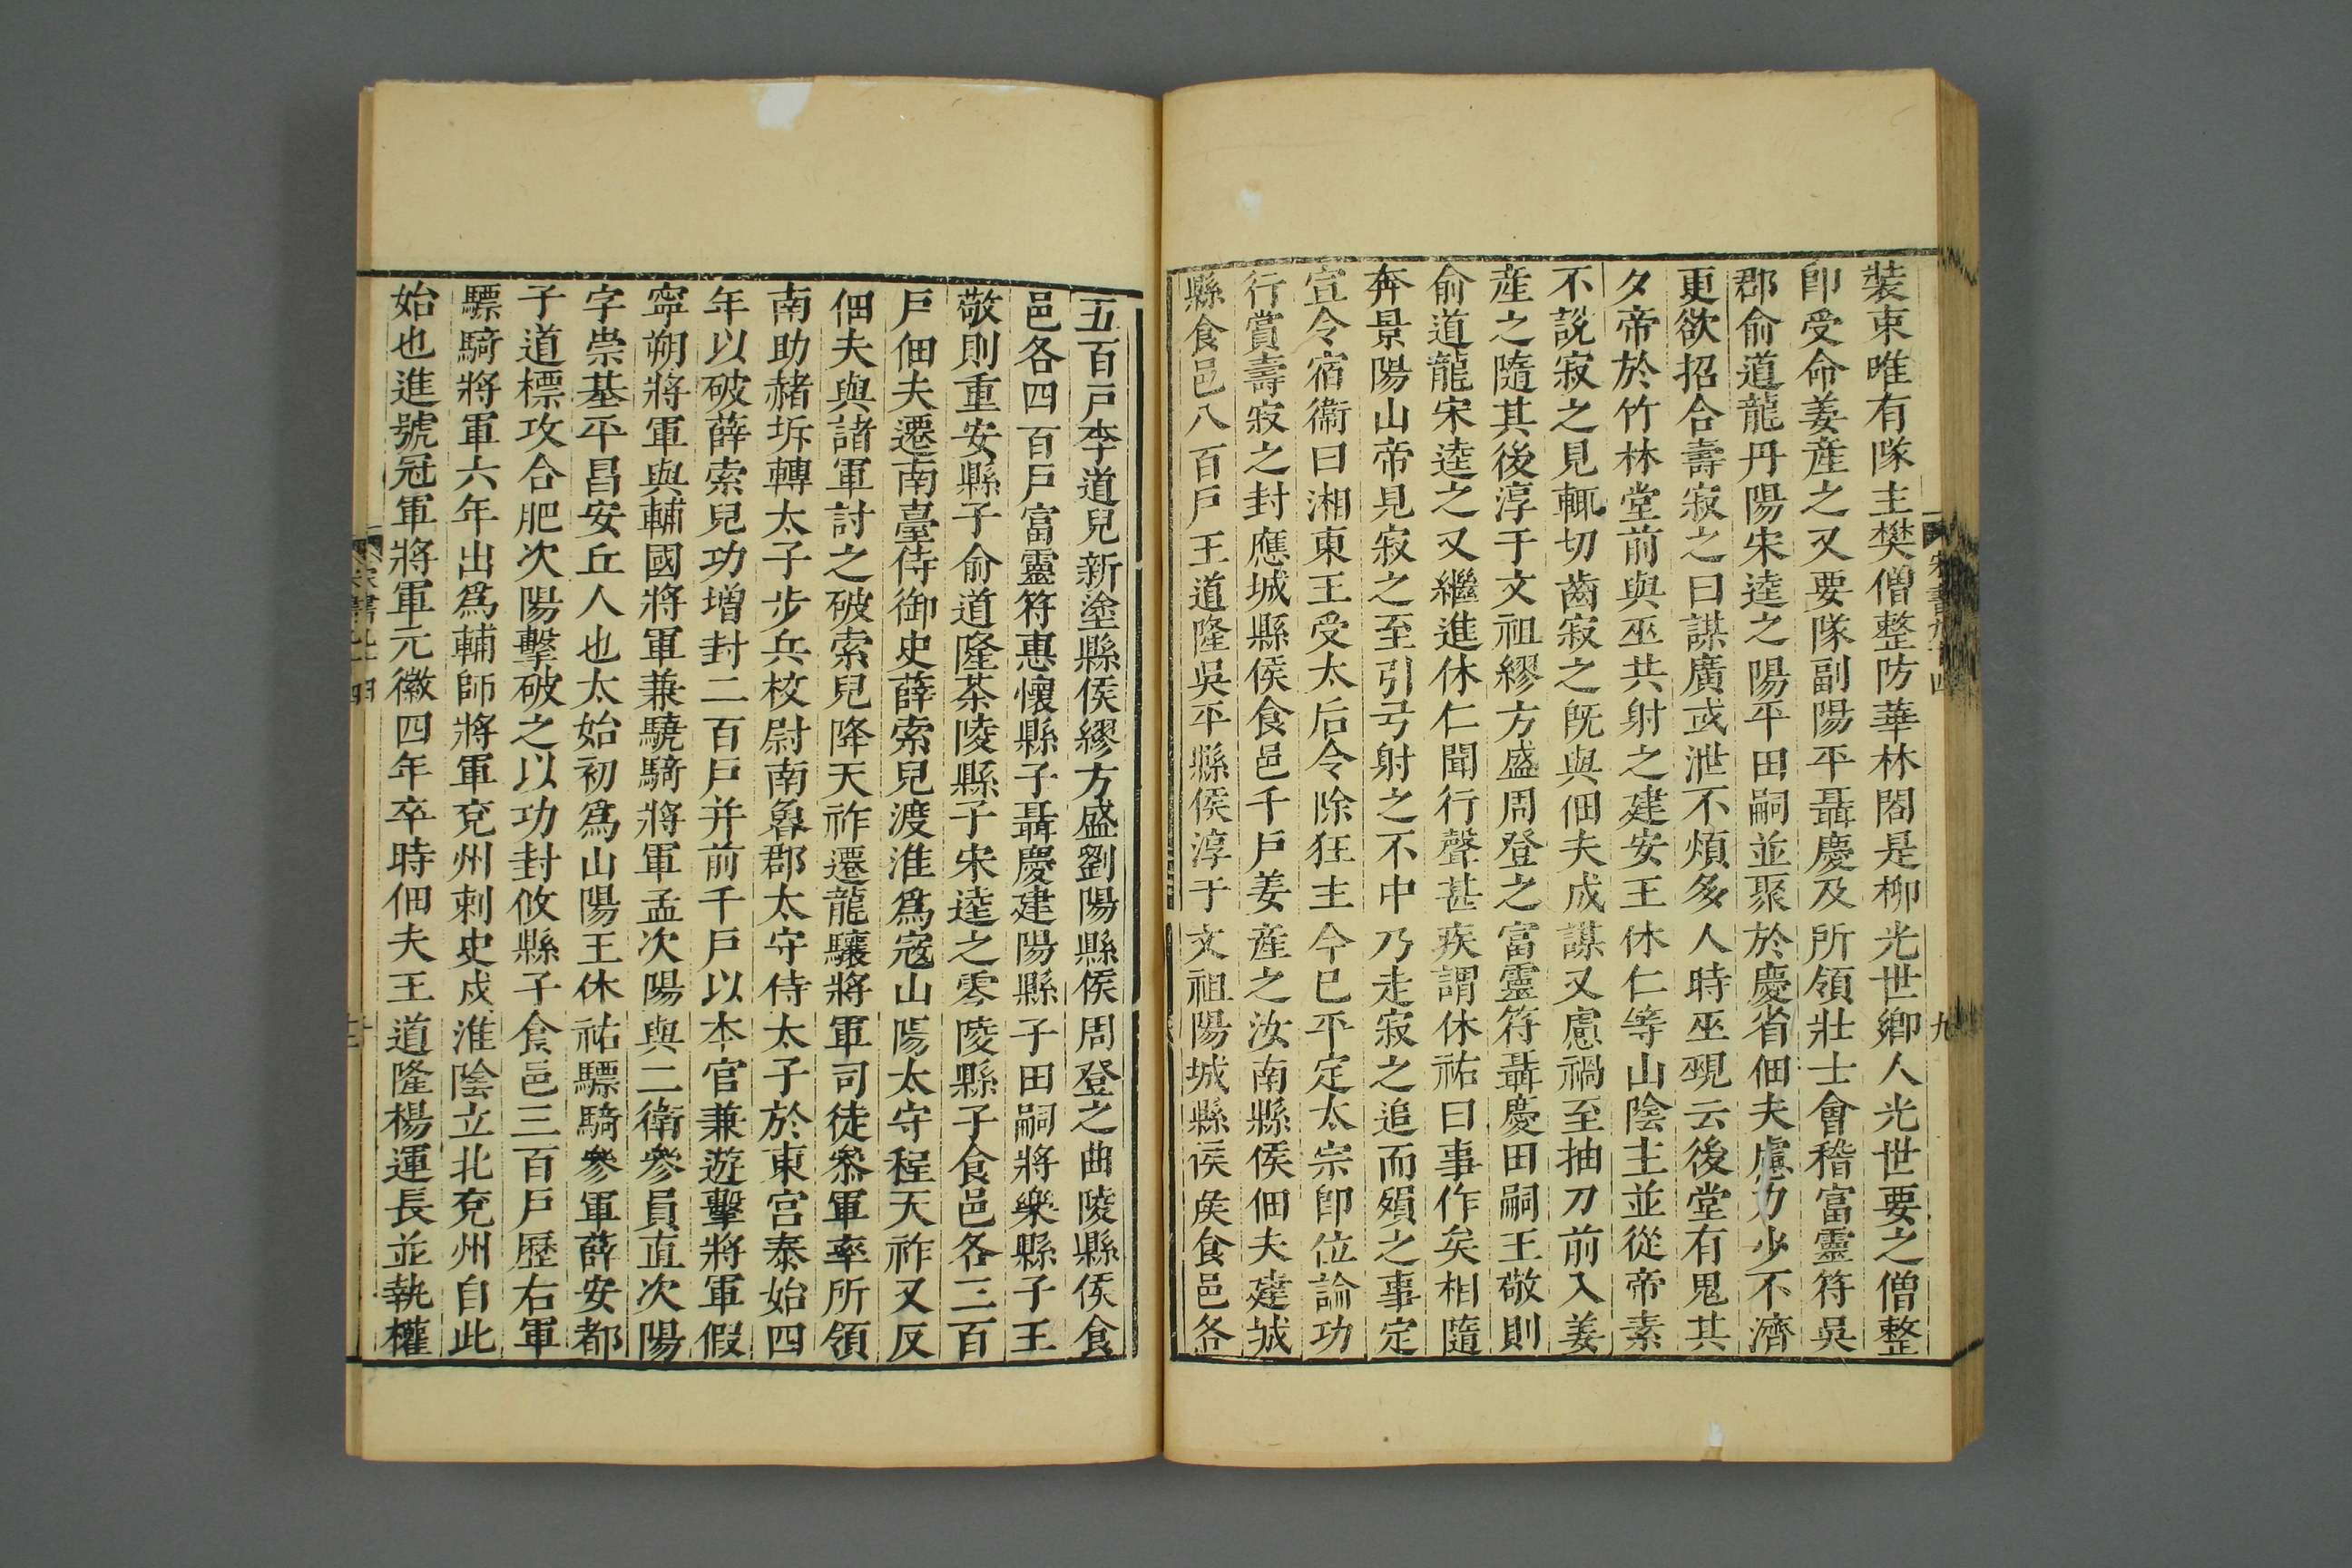 裝束唯有隊主樊僧整防華林閤是柳光世鄉人光世要之僧整
卽受命姜產之又要隊副陽平聶慶及所領壯士會稽富靈符吳
郡俞道龍丹陽宋逵之陽平田嗣並聚於慶省佃夫慮力少不濟
更欲招合壽寂之曰謀廣或泄不煩多人時巫覡云後堂有鬼其
夕帝於竹林堂前與巫共射之建安王休仁等山陰主並從帝素
不說寂之見輒切齒寂之旣與佃夫成謀又慮禍至抽刀前入姜
産之隨其後淳于文祖繆方盛周登之富靈符聶慶田嗣王敬則
俞道龍宋逵之又繼進休仁聞行聲甚疾謂休祐曰事作矣相隨
奔景陽山帝見寂之至引弓射之不中乃走寂之追而殞之事定
宣令宿衞曰湘東王受太后令除狂主今已平定太宗卽位論功
行賞壽寂之封應城縣侯食邑千戸姜産之汝南縣侯佃夫建城
縣食邑八百戸王道隆吳平縣侯淳于文祖陽城縣侯食邑各
五百戸李道兒新塗縣侯繆方盛劉陽縣侯周登之曲陵縣侯食
邑各四百戸富靈符惠懷縣子聶慶建陽縣子田嗣將樂縣子王
敬則重安縣子俞道隆茶陵縣子宋逵之零陵縣子食邑各三百
戸佃夫遷南臺侍御史薛索兒渡淮爲寇山陽太守程天祚又反
佃夫與諸軍討之破索兒降天祚遷龍驤將軍司徒叅軍率所領
南助赭圻轉太子步兵校尉南魯郡太守侍太子於東宮泰始四
年以破薛索兒功增封二百戸并前千戸以本官兼遊擊將軍假
寧朔將軍與輔國將軍兼驍騎將軍孟次陽與二衛參員直次陽
字崇基平昌安丘人也太始初爲山陽王休祐驃騎參軍薛安都
子道標攻合肥次陽擊破之以功封攸縣子食邑三百戸歷右軍
驃騎將軍六年出爲輔師將軍兗州刺史戍淮陰立北兗州自此
始也進號冠軍將軍元徽四年卒時佃夫王道隆楊運長並執權